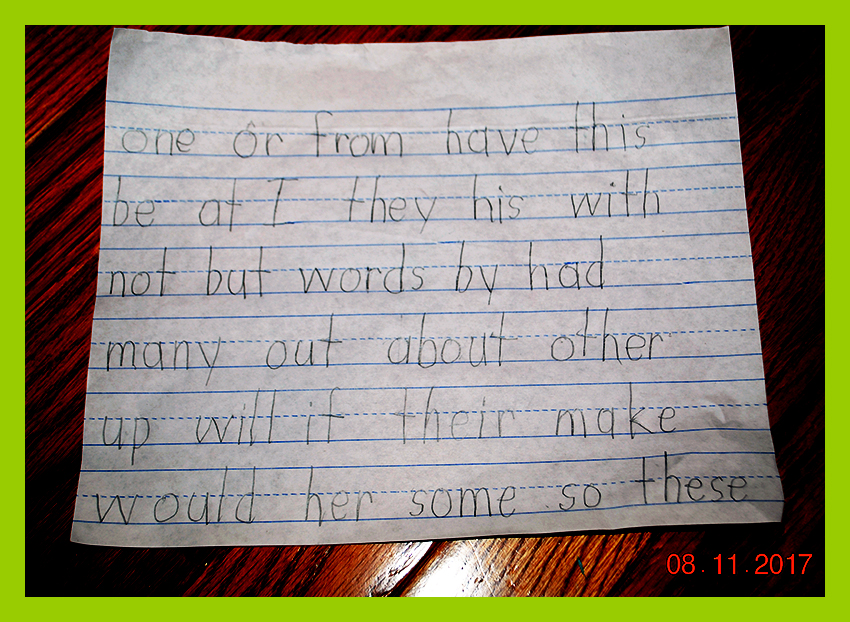 one or from have this
be at I they his with
not but words by had
many out about other
up will if their make
would her some so these
08.11.2017